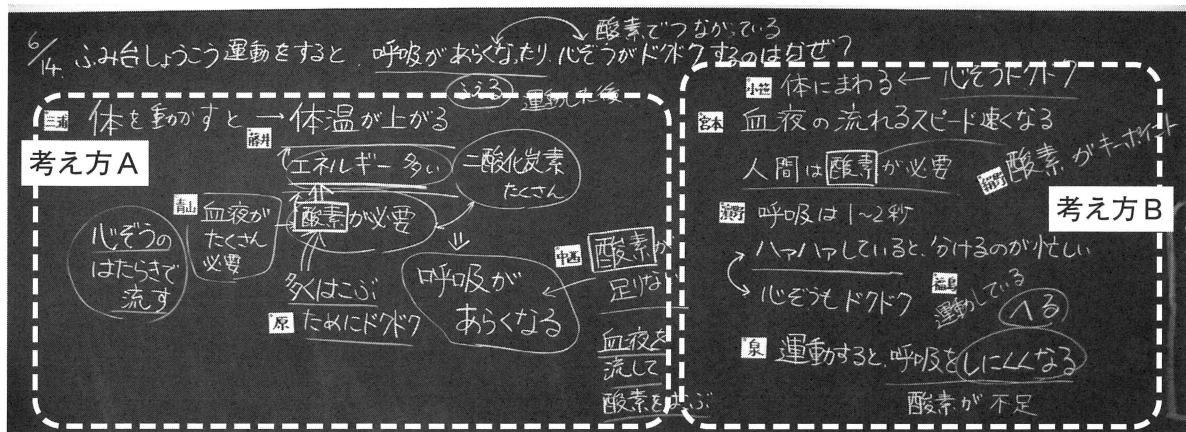 酸素でつながっている
6/14. ふみ台しょうこう運動をすると、呼吸があらくなったり、心ぞうがドクドクするのはなぜ?
ふえる 運動した後
考え方A
三浦 体を動かすと → 体温が上がる
藤井
エネルギー多い
二酸化炭素
たくさん
青山 血液が
たくさん
必要
酸素が必要
心ぞうの
はたらきで
流す
多くはこぶ
原 ためにドクドク
呼吸が
あらくなる
中西 酸素が
足りない
血液を
流して
酸素をはこぶ
考え方B
小笹 体にまわる ← 心ぞうドクドク
宮本 血液の流れるスピード速くなる
人間は酸素が必要
酸素がキーポイント
呼吸は1~2秒
ハァハァしていると、分けるのが忙しい
心ぞうもドクドク
福島
運動している
へる
泉 運動すると、呼吸をしにくくなる
酸素が不足